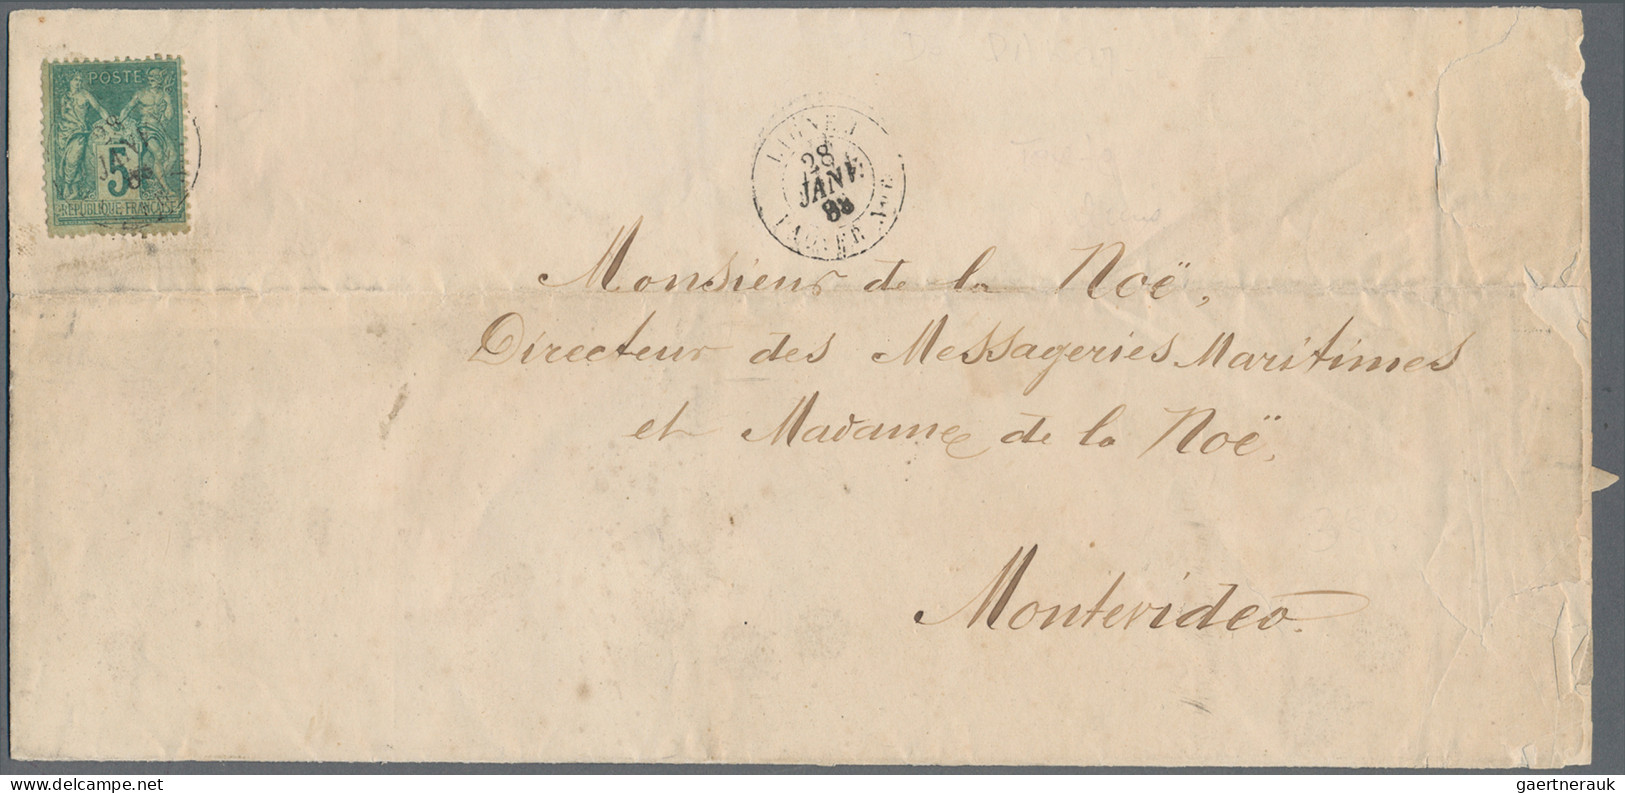 POSTE
28
JANV
5
REPUBLIQUE FRANÇAISE
LIGNE J
28
JANV.
88
PAQ. FR. Nº
Monsieur de la Noë,
Directeur des Messageries Maritimes
et Madame de la Noë,
Montevideo.
gaertnerauk